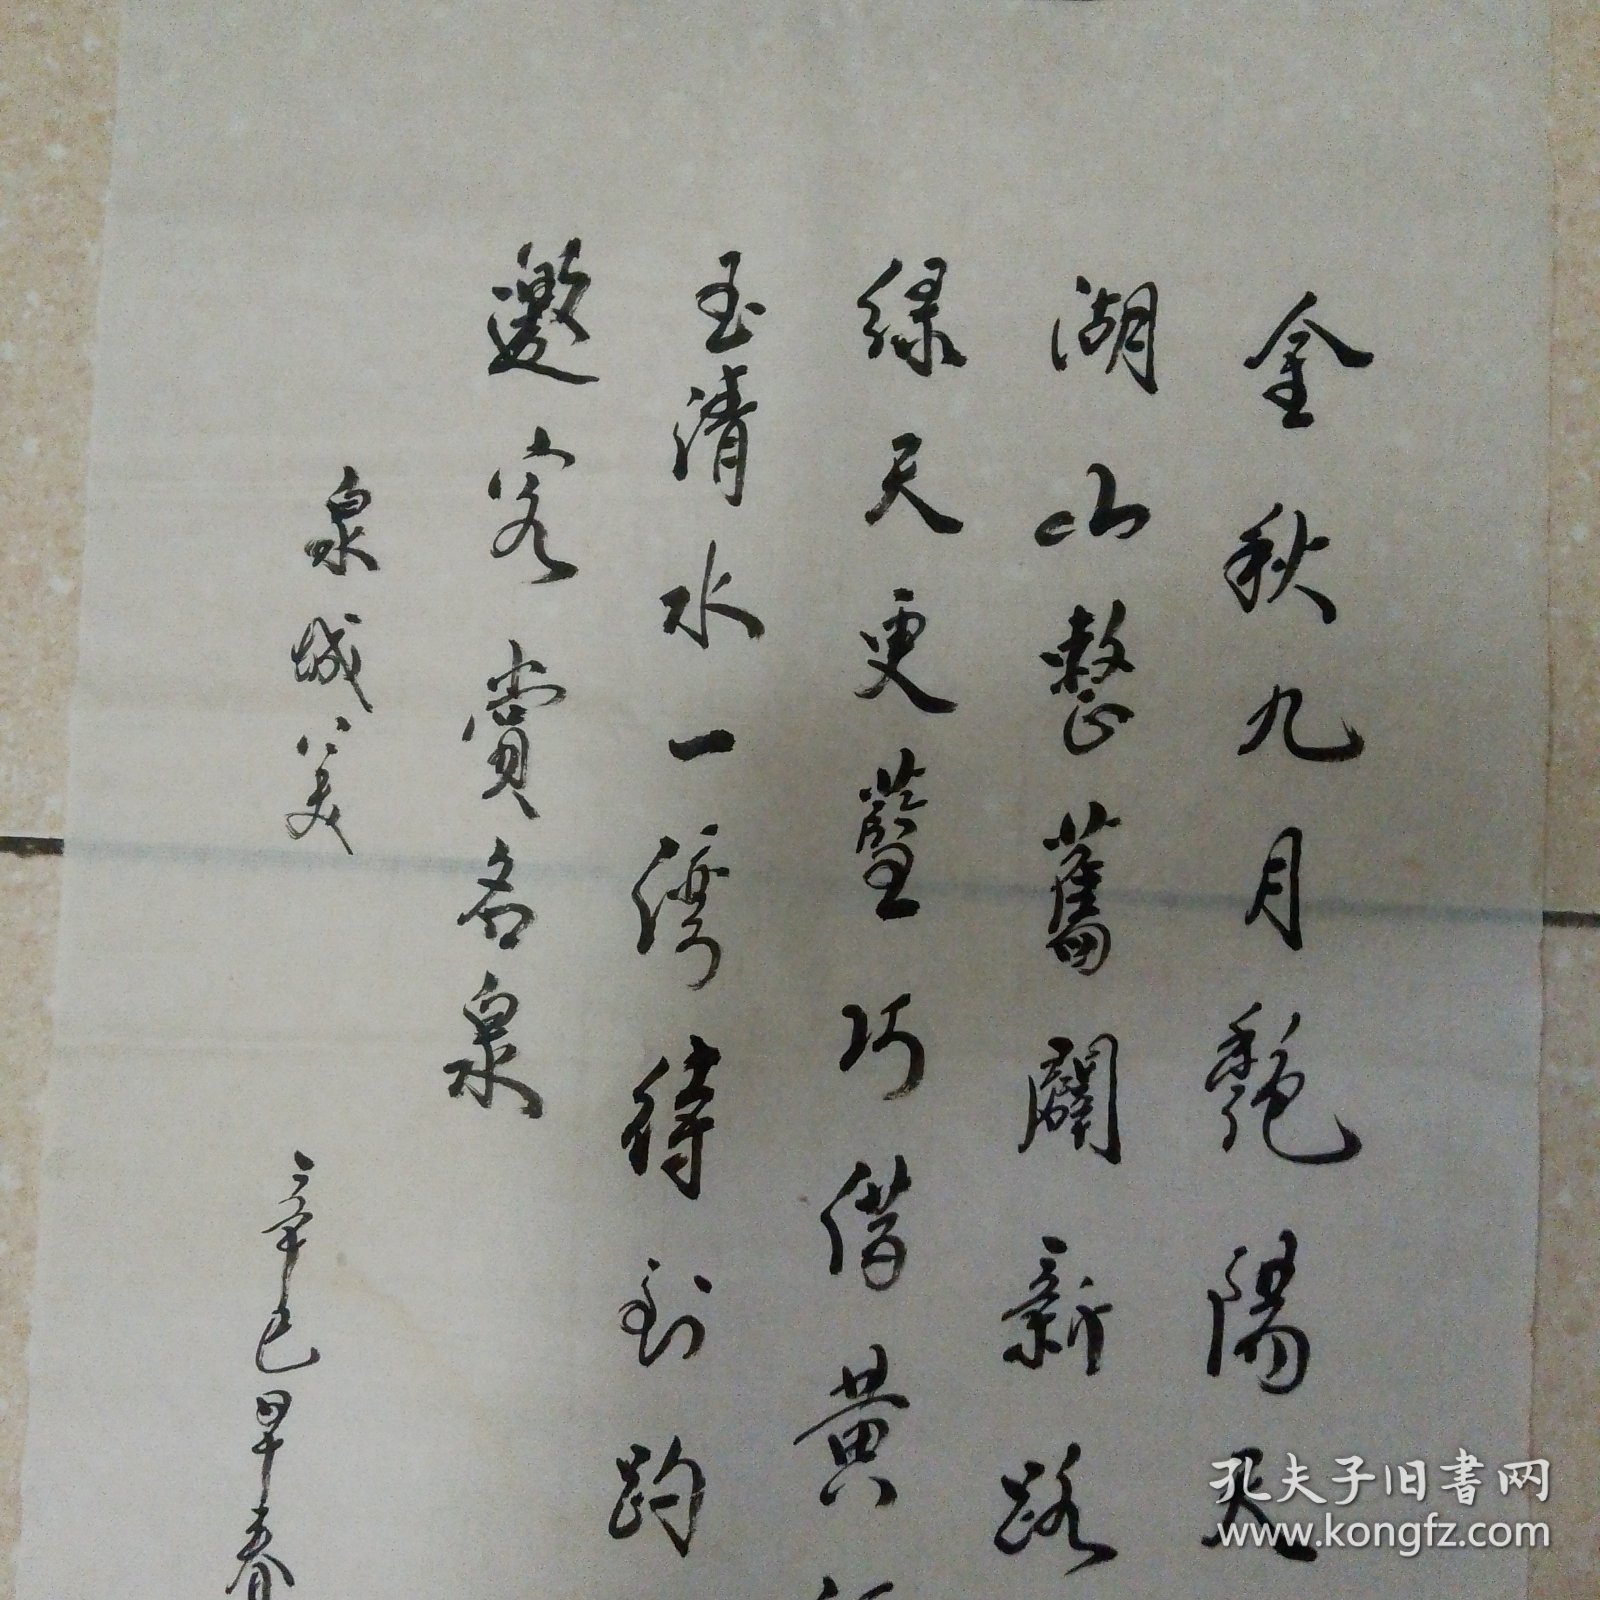 金秋九月艳陽天
湖山整舊闢新路
綠天更藍巧借黄
玉清水一灣待到
邀客賞名泉
泉城公美
辛巳早春
孔夫子旧書网
www.kongfz.com